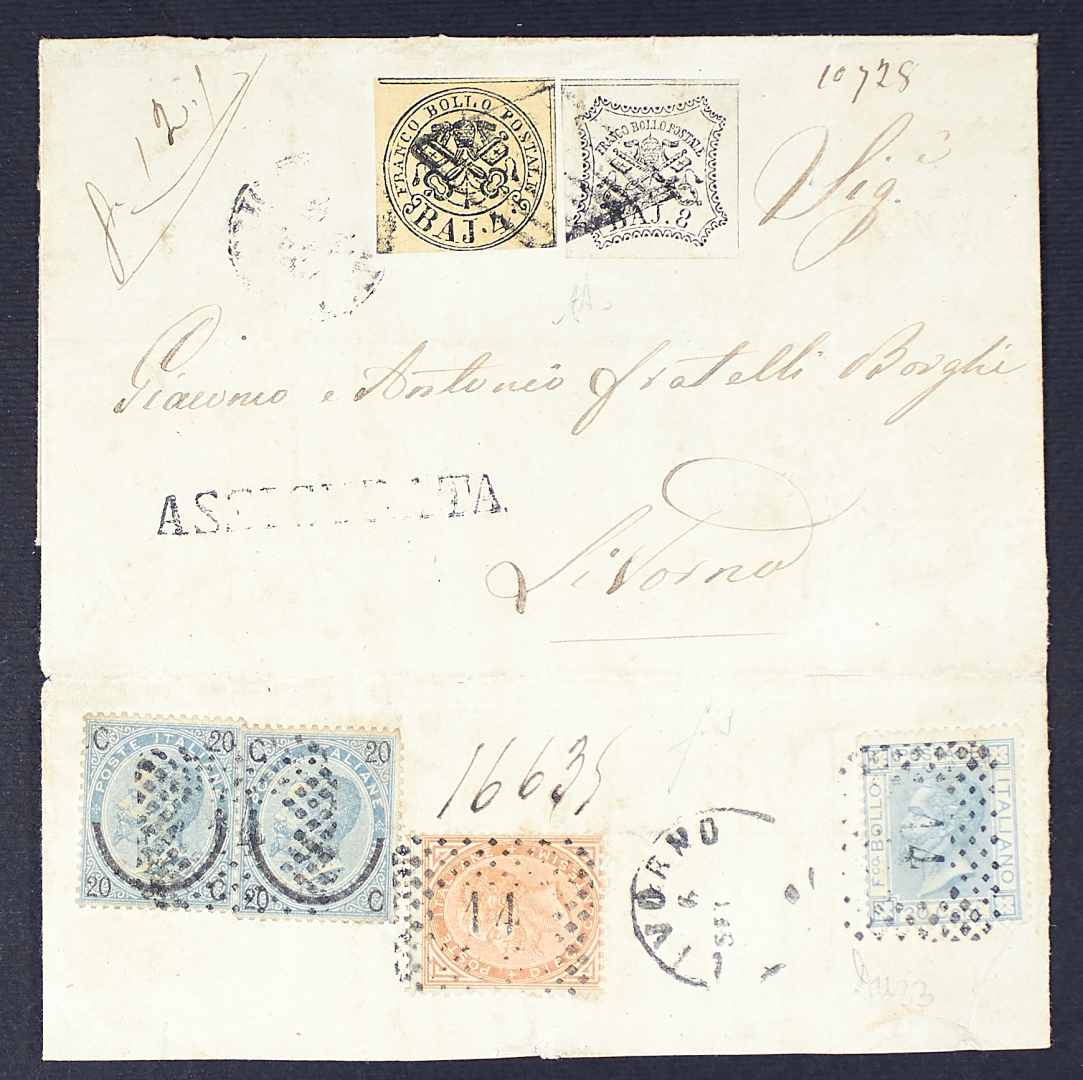 10728
12.
FRANCO BOLLO POSTALE
BAJ. 4.
FRANCO BOLLO POSTALE
BAJ. 8
Sig.i
Giacomo e Antonio fratelli Borghi
ASSICURATA
Livorno
C 20
POSTE ITALIANE
20 C
C 20
POSTE ITALIANE
20 C
16635
14
POSTE
LIVORNO
6
SET
Fco. BOLLO
ITALIANO
20
14